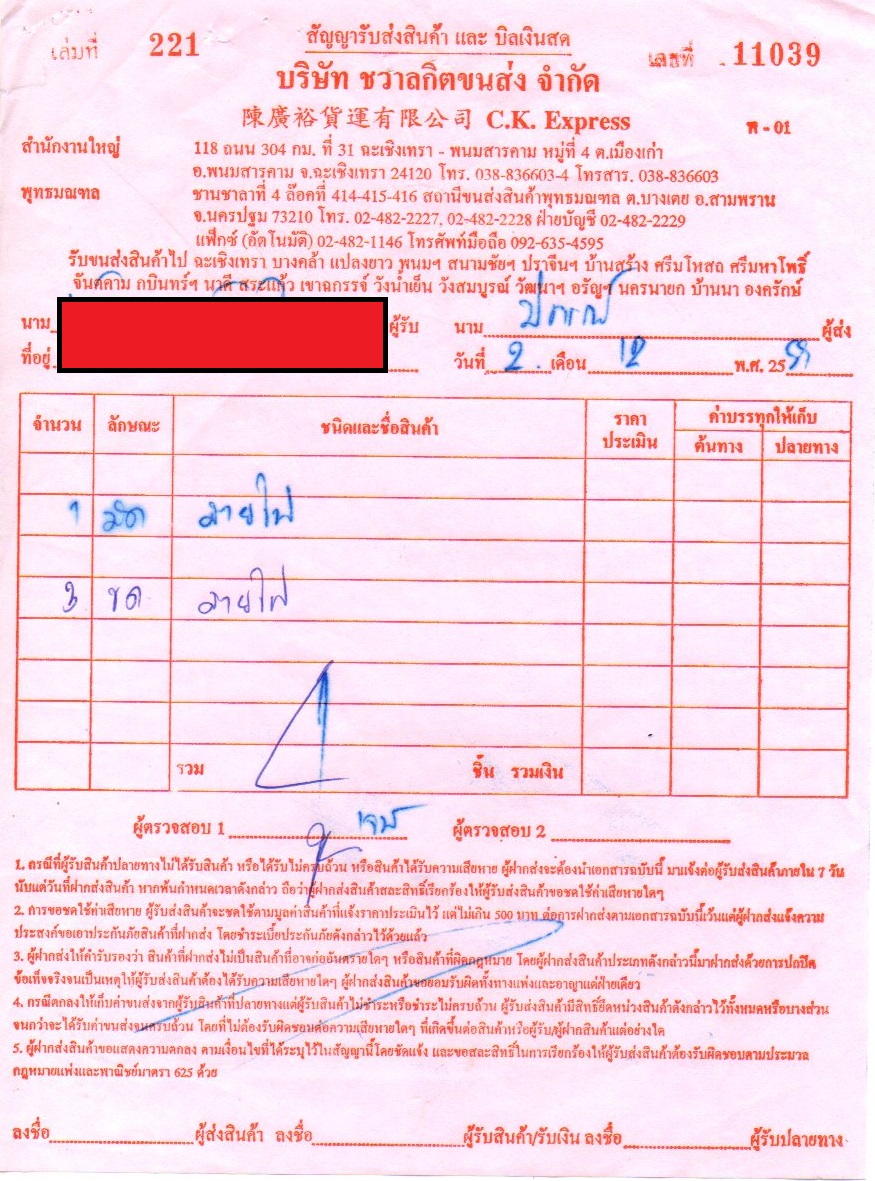 เล่มที่ 221 สัญญารับส่งสินค้า และ บิลเงินสด เลขที่ 11039
บริษัท ชวาลกิตขนส่ง จำกัด
陳廣裕貨運有限公司 C.K. Express พ - 01
สำนักงานใหญ่ 118 ถนน 304 กม. ที่ 31 ฉะเชิงเทรา - พนมสารคาม หมู่ที่ 4 ต.เมืองเก่า
อ.พนมสารคาม จ.ฉะเชิงเทรา 24120 โทร. 038-836603-4 โทรสาร. 038-836603
พุทธมณฑล ชานชาลาที่ 4 ล๊อคที่ 414-415-416 สถานีขนส่งสินค้าพุทธมณฑล ต.บางเตย อ.สามพราน
จ.นครปฐม 73210 โทร. 02-482-2227, 02-482-2228 ฝ่ายบัญชี 02-482-2229
แฟ็กซ์ (อัตโนมัติ) 02-482-1146 โทรศัพท์มือถือ 092-635-4595
รับขนส่งสินค้าไป ฉะเชิงเทรา บางคล้า แปลงยาว พนมฯ สนามชัยฯ ปราจีนฯ บ้านสร้าง ศรีมโหสถ ศรีมหาโพธิ์
จันต์คาม กบินทร์ฯ นาดี สระแก้ว เขาฉกรรจ์ วังน้ำเย็น วังสมบูรณ์ วัฒนาฯ อรัญฯ นครนายก บ้านนา องครักษ์
นาม ผู้รับ นาม ผู้ส่ง
ที่อยู่ วันที่ 2. เดือน 12 พ.ศ. 25
จำนวน ลักษณะ ชนิดและชื่อสินค้า ราคาประเมิน ค่าบรรทุกให้เก็บ
ต้นทาง ปลายทาง
1 มัด สายไฟ
3 ขด สายไฟ
รวม 4 ชิ้น รวมเงิน
ผู้ตรวจสอบ 1 ผู้ตรวจสอบ 2
1. กรณีที่ผู้รับสินค้าปลายทางไม่ได้รับสินค้า หรือได้รับไม่ครบถ้วน หรือสินค้าได้รับความเสียหาย ผู้ฝากส่งจะต้องนำเอกสารฉบับนี้ มาแจ้งต่อผู้รับส่งสินค้าภายใน 7 วัน
นับแต่วันที่ฝากส่งสินค้า หากพ้นกำหนดเวลาดังกล่าว ถือว่าผู้ฝากส่งสินค้าสละสิทธิ์เรียกร้องให้ผู้รับส่งสินค้าขอชดใช้ค่าเสียหายใดๆ
2. การขอชดใช้ค่าเสียหาย ผู้รับส่งสินค้าจะชดใช้ตามมูลค่าสินค้าที่แจ้งราคาประเมินไว้ แต่ไม่เกิน 500 บาท ต่อการฝากส่งตามเอกสารฉบับนี้เว้นแต่ผู้ฝากส่งแจ้งความ
ประสงค์ขอเอาประกันภัยสินค้าที่ฝากส่ง โดยชำระเบี้ยประกันภัยดังกล่าวไว้ด้วยแล้ว
3. ผู้ฝากส่งให้คำรับรองว่า สินค้าที่ฝากส่งไม่เป็นสินค้าที่อาจก่ออันตรายใดๆ หรือสินค้าที่ผิดกฎหมาย โดยผู้ฝากส่งสินค้าประเภทดังกล่าวนี้มาฝากส่งด้วยการปกปิด
ข้อเท็จจริงจนเป็นเหตุให้ผู้รับส่งสินค้าต้องได้รับความเสียหายใดๆ ผู้ฝากส่งสินค้าขอยอมรับผิดทั้งทางแพ่งและอาญาแต่ฝ่ายเดียว
4. กรณีตกลงให้เก็บค่าขนส่งจากผู้รับสินค้าที่ปลายทางแต่ผู้รับสินค้าไม่ชำระหรือชำระไม่ครบถ้วน ผู้รับส่งสินค้ามีสิทธิยึดหน่วงสินค้าดังกล่าวไว้ทั้งหมดหรือบางส่วน
จนกว่าจะได้รับค่าขนส่งจนครบถ้วน โดยที่ไม่ต้องรับผิดชอบต่อความเสียหายใดๆ ที่เกิดขึ้นต่อสินค้าหรือผู้รับ/ผู้ฝากสินค้าแต่อย่างใด
5. ผู้ฝากส่งสินค้าขอแสดงความตกลง ตามเงื่อนไขที่ได้ระบุไว้ในสัญญานี้โดยชัดแจ้ง และขอสละสิทธิ์ในการเรียกร้องให้ผู้รับส่งสินค้าต้องรับผิดชอบตามประมวล
กฎหมายแพ่งและพาณิชย์มาตรา 625 ด้วย
ลงชื่อ ผู้ส่งสินค้า ลงชื่อ ผู้รับสินค้า/รับเงิน ลงชื่อ ผู้รับปลายทาง